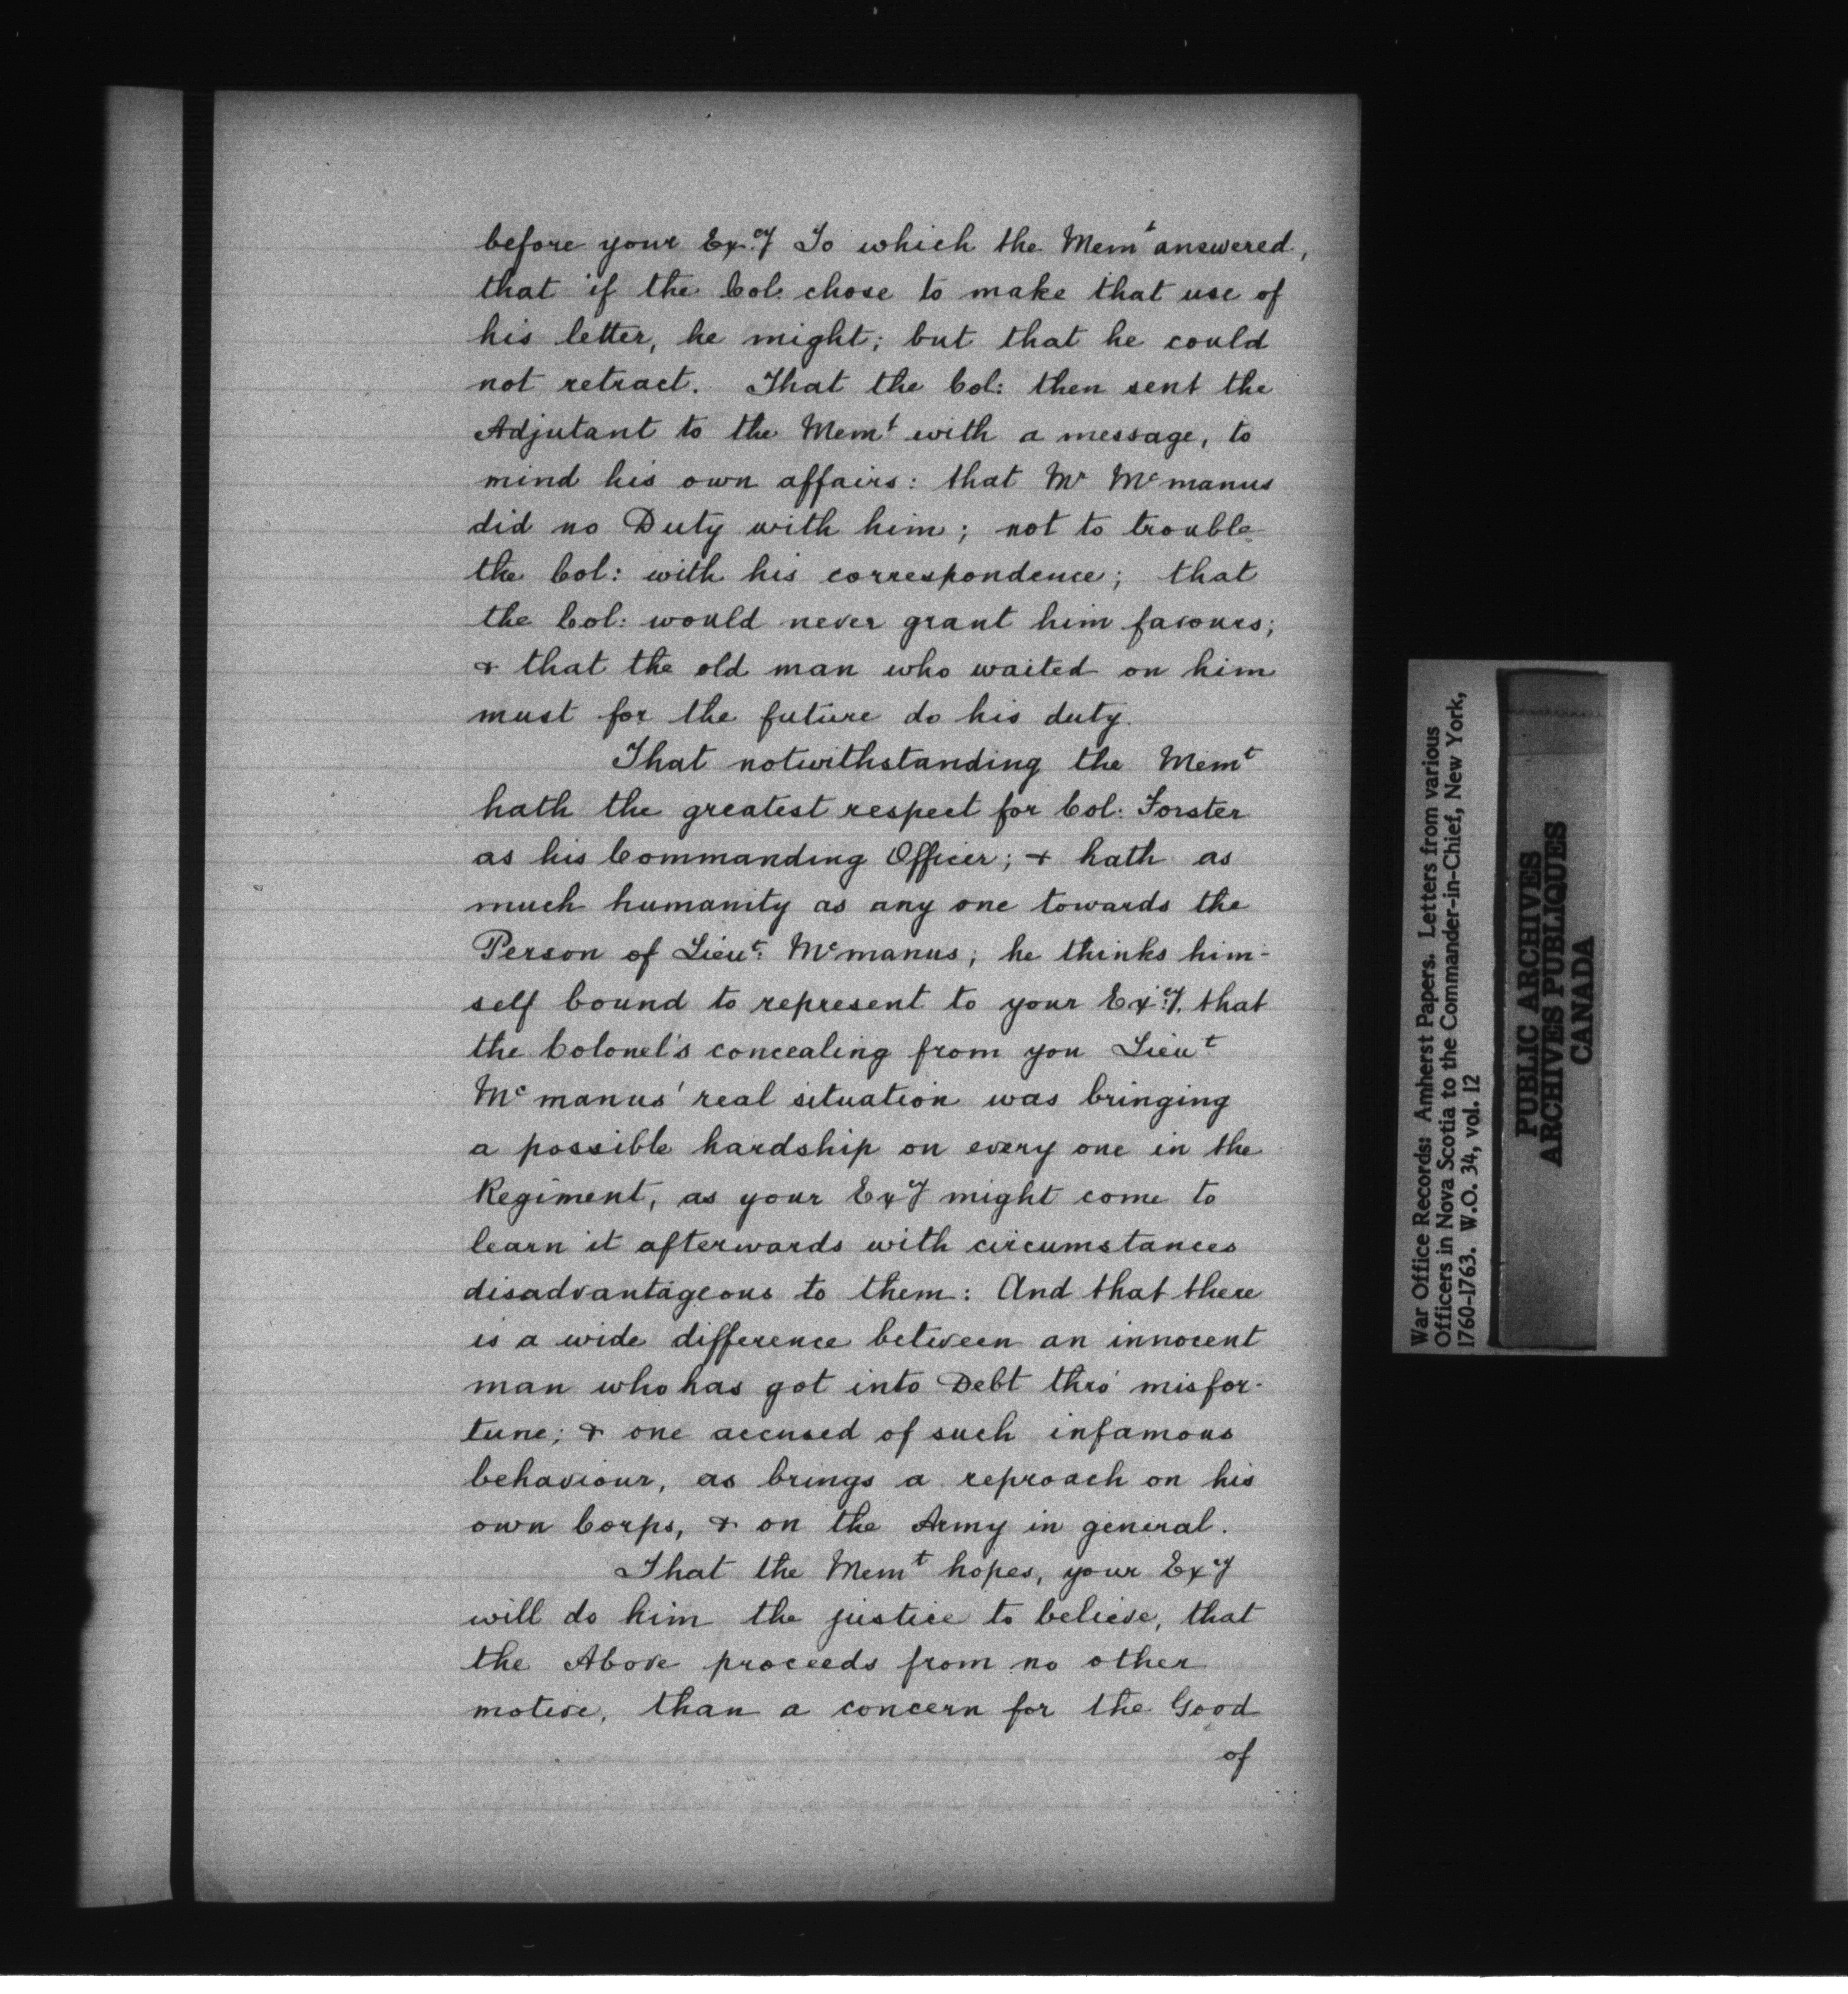 before your Excy To which the Memt answered,
that if the Col. chose to make that use of
his letter, he might; but that he could
not retract. That the Col: then sent the
Adjutant to the Memt with a message, to
mind his own affairs: that Mr McManus
did no Duty with him; not to trouble
the Col: with his correspondence; that
the Col: would never grant him favours;
& that the old man who waited on him
must for the future do his duty.
That notwithstanding the Memt
hath the greatest respect for Col: Forster
as his Commanding Officer; & hath as
much humanity as any one towards the
Person of Lieut: McManus; he thinks him-
self bound to represent to your Excy. that
the Colonel's concealing from you Lieut
McManus' real situation was bringing
a possible hardship on every one in the
Regiment, as your Excy might come to
learn it afterwards with circumstances
disadvantageous to them: And that there
is a wide difference between an innocent
man who has got into Debt thro' misfor-
tune; & one accused of such infamous
behaviour, as brings a reproach on his
own Corps, & on the Army in general.
That the Memt hopes, your Excy
will do him the justice to believe, that
the Above proceeds from no other
motive, than a concern for the Good
of
War Office Records: Amherst Papers. Letters from various
Officers in Nova Scotia to the Commander-in-Chief, New York,
1760-1763. W.O. 34, vol. 12
PUBLIC ARCHIVES
ARCHIVES PUBLIQUES
CANADA